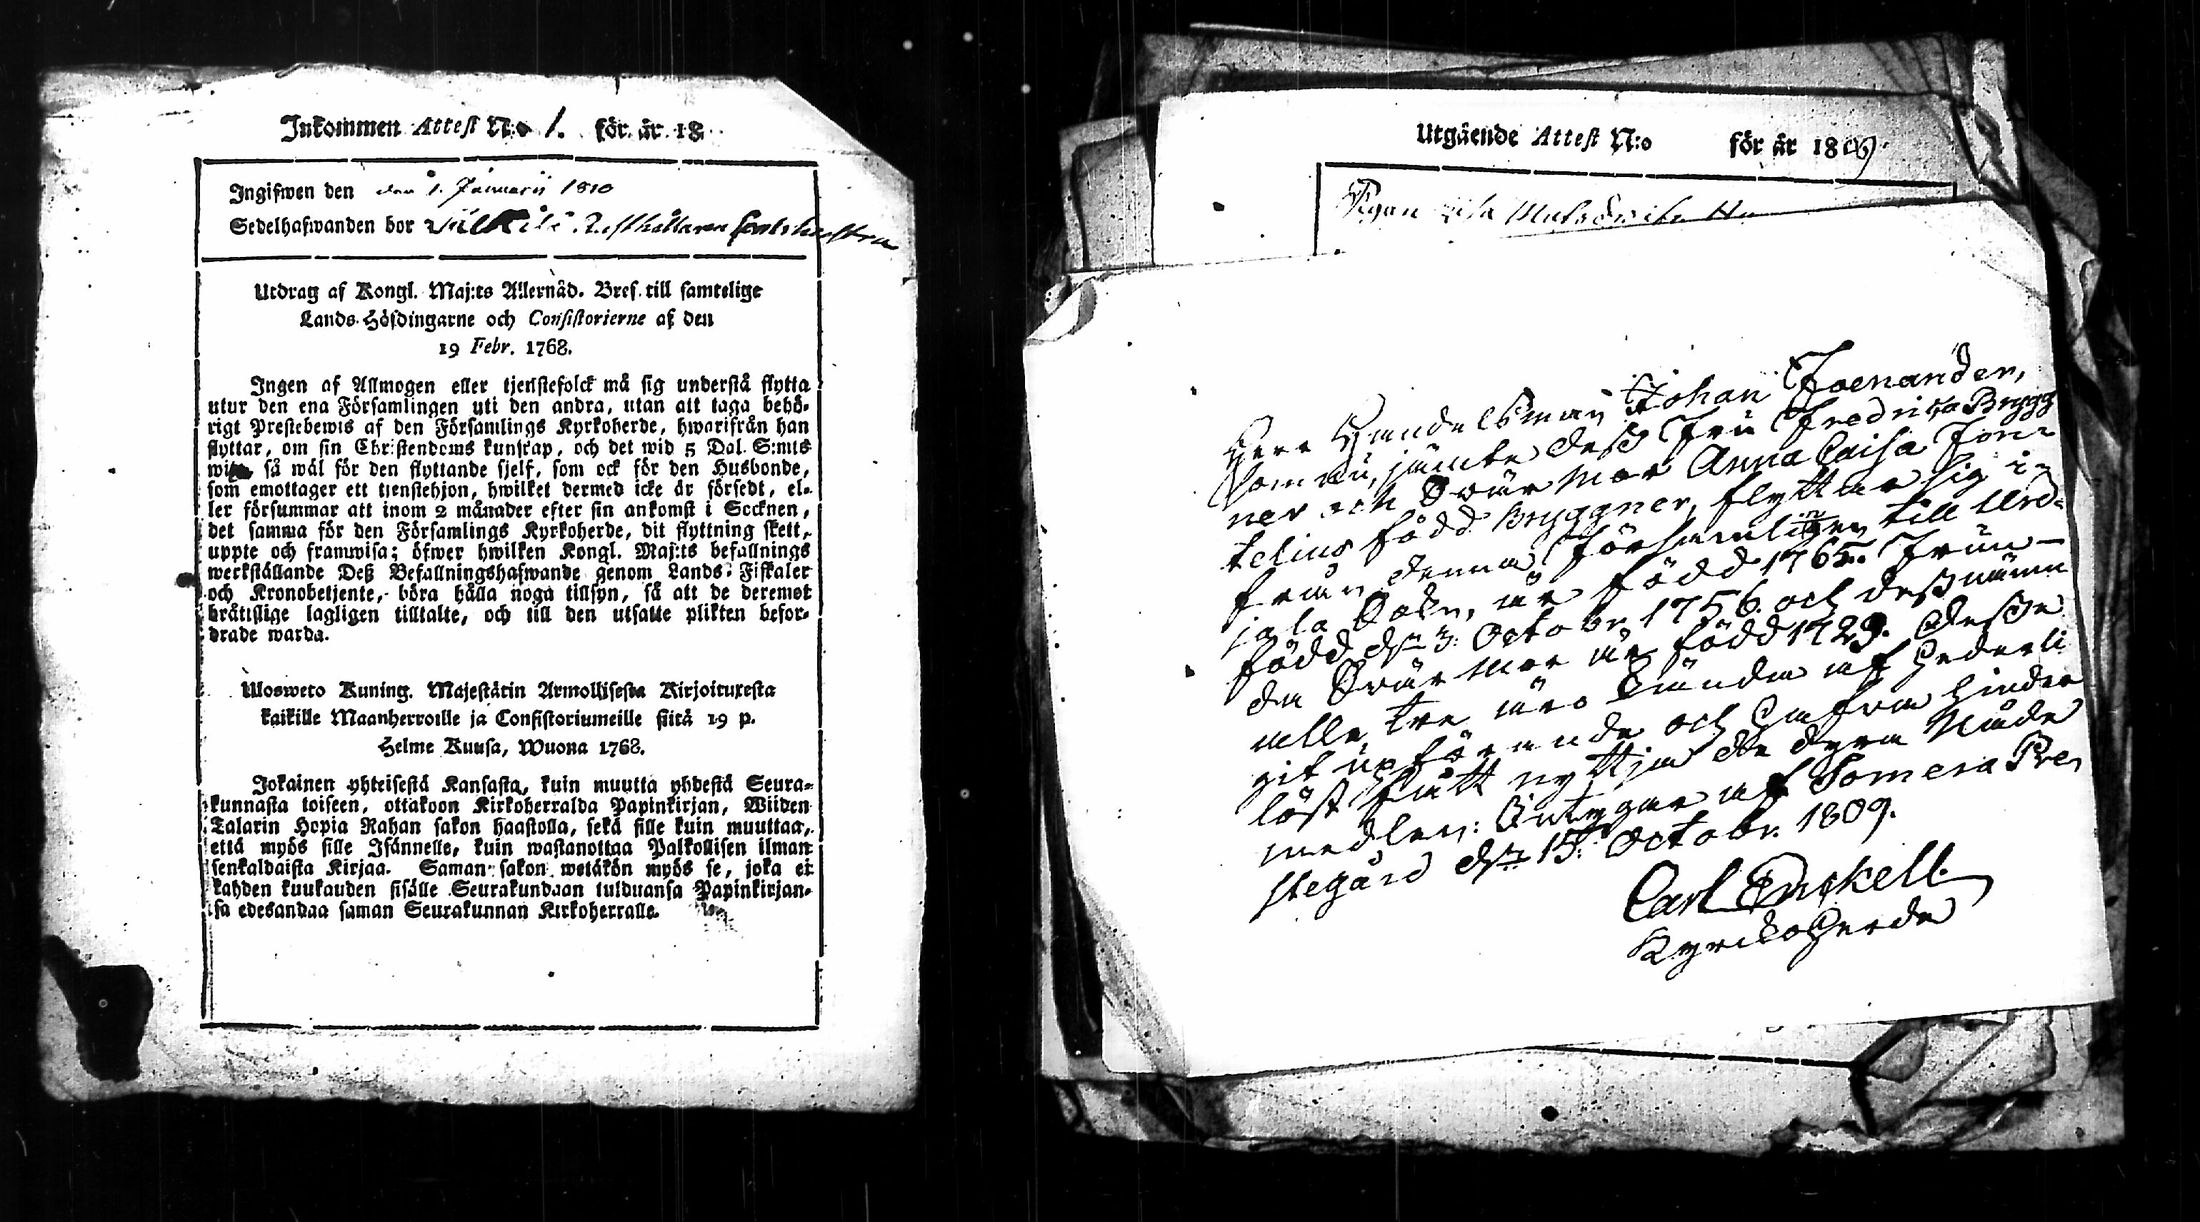 Inkommen Attest N:o 1. för år 18
Ingifwen den den 1. Januarii 1810
Sedelhafwanden bor Rusthållaren
Utdrag af Kongl. Maj:ts Allernåd. Bref till samtelige
Lands-Höfdingarne och Consistorierne af den
19 Febr. 1768.
Ingen af Allmogen eller tjenstefolck må sig understå flytta
utur den ena Församlingen uti den andra, utan att taga behö-
rigt Prestebewis af den Församlings Kyrkoherde, hwarifrån han
flyttar, om sin Christendoms kunskap, och det wid 5 Dal. S:mts
wite, så wäl för den flyttande sjelf, som ock för den Husbonde,
som emottager ett tienstehjon, hwilket dermed icke är försedt, el-
ler försummar att inom 2 månader efter sin ankomst i Socknen,
det samma för den Församlings Kyrkoherde, dit flyttning skett,
uppte och framwisa; öfwer hwilken Kongl. Maj:ts befallnings
werkställande Deß Befallningshafwande genom Lands-Fiskaler
och Kronobetjente, böra hålla noga tillsyn, så att de deremot
bråttslige lagligen tilltalte, och till den utsatte plikten befor-
drade warda.
Ulosweto Kuning. Majestätin Armollisesta Kirjoituxesta
kaikille Maanherroille ja Consistoriumeille siitä 19 p.
Helme Kuusa, Wuona 1768.
Jokainen yhteisestä Kansasta, kuin muutta yhdestä Seura-
kunnasta toiseen, ottakoon Kirkoherralda Papinkirjan, Wiiden
Talarin Hopia Rahan sakon haastolla, sekä sille kuin muuttaa,
että myös sille Isännelle, kuin wastanottaa Palkollisen ilman
senkaldaista Kirjaa. Saman sakon wetäkön myös se, joka ei
kahden kuukauden sisälle Seurakundaan tulduansa Papinkirjan-
sa edesandaa saman Seurakunnan Kirkoherralle.
Utgående Attest N:o för år 1809
Pigan
Herr Handelsman Johan Joenander,
som nu, jämte deß Fru Fredrika Brygg
ner och Svärmor Anna Caisa
telius född Bryggner, flyttar sig i
från denna Församlingen till Urd-
jala Sokn, är född 1765. Frun
född d. 3. Octobr. 1756. och deß nämn
da Svärmor är född 1729. Desse
alle tre äro kände af hederli
git upförande och hafva hinder
löst fått nyttja de dyra Nåde
medlen: Intygar af Somero Pre
stegård d. 15. Octobr. 1809.
Carl Enckell.
Kyrckoherde